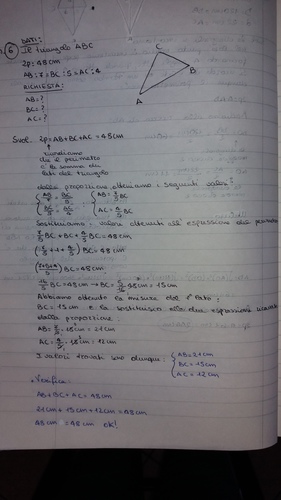 DATI:
6 Il triangolo ABC
2p = 48 cm
AB : 7 = BC : 5 = AC : 4
RICHIESTA:
AB = ?
BC = ?
AC = ?
C
B
A
Svol. 2p = AB + BC + AC = 48 cm
ricordiamo
che il perimetro
è la somma dei
lati del triangolo
dalla proporzione otteniamo i seguenti valori:
AB/7 = BC/5 AB = 7/5 BC
BC/5 = AC/4 AC = 4/5 BC
Sostituiamo i valori ottenuti all'espressione del perimetro
7/5 BC + BC + 4/5 BC = 48 cm
(7/5 + 1 + 4/5) BC = 48 cm
(7+5+4/5) BC = 48 cm
16/5 BC = 48 cm → BC = 5/16 · 48 cm = 15 cm
Abbiamo ottenuto la misura del 1° lato:
BC = 15 cm e la sostituisco alle due espressioni ricavate
dalla proporzione.
AB = 7/5 · 15 cm = 21 cm
AC = 4/5 · 15 cm = 12 cm
I valori trovati sono dunque: AB = 21 cm
BC = 15 cm
AC = 12 cm
Verifica
AB + BC + AC = 48 cm
21 cm + 15 cm + 12 cm = 48 cm
48 cm = 48 cm ok!